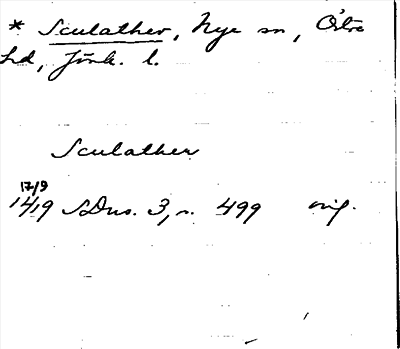 * Sculather, Nye sn, Östra
hd, Jönk. l.
Sculather
17/9
1419 SDns. 3, s. 499 orig.